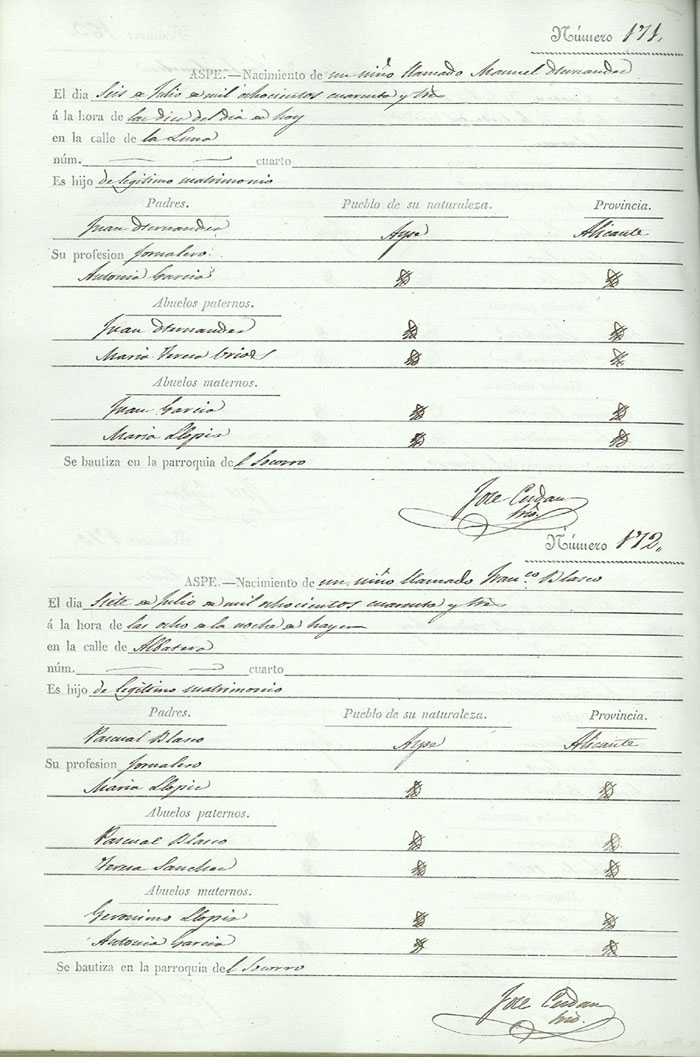 Número 171.
ASPE.—Nacimiento de un niño llamado Manuel Hernandez
El dia Seis de Julio de mil ochocientos cuarenta y tres
á la hora de las diez del dia de hoy
en la calle de la Luna
núm. cuarto
Es hijo de legitimo matrimonio
Padres. Pueblo de su naturaleza. Provincia.
Juan Hernandez Aspe Alicante
Su profesion Jornalero
Antonia Garcia
Abuelos paternos.
Juan Hernandez
Maria Teresa
Abuelos maternos.
Juan Garcia
Maria Llopis
Se bautiza en la parroquia del Socorro
Jose Cerdan
Número 172.
ASPE.—Nacimiento de un niño llamado Fran.co Blasco
El dia Siete de Julio de mil ochocientos cuarenta y tres
á la hora de las ocho de la noche de hayer
en la calle de Albatera
núm. cuarto
Es hijo de legitimo matrimonio
Padres. Pueblo de su naturaleza. Provincia.
Pascual Blasco Aspe Alicante
Su profesion Jornalero
Maria Llopis
Abuelos paternos.
Pascual Blasco
Teresa Sanchez
Abuelos maternos.
Geronimo Llopis
Antonia Garcia
Se bautiza en la parroquia del Socorro
Jose Cerdan